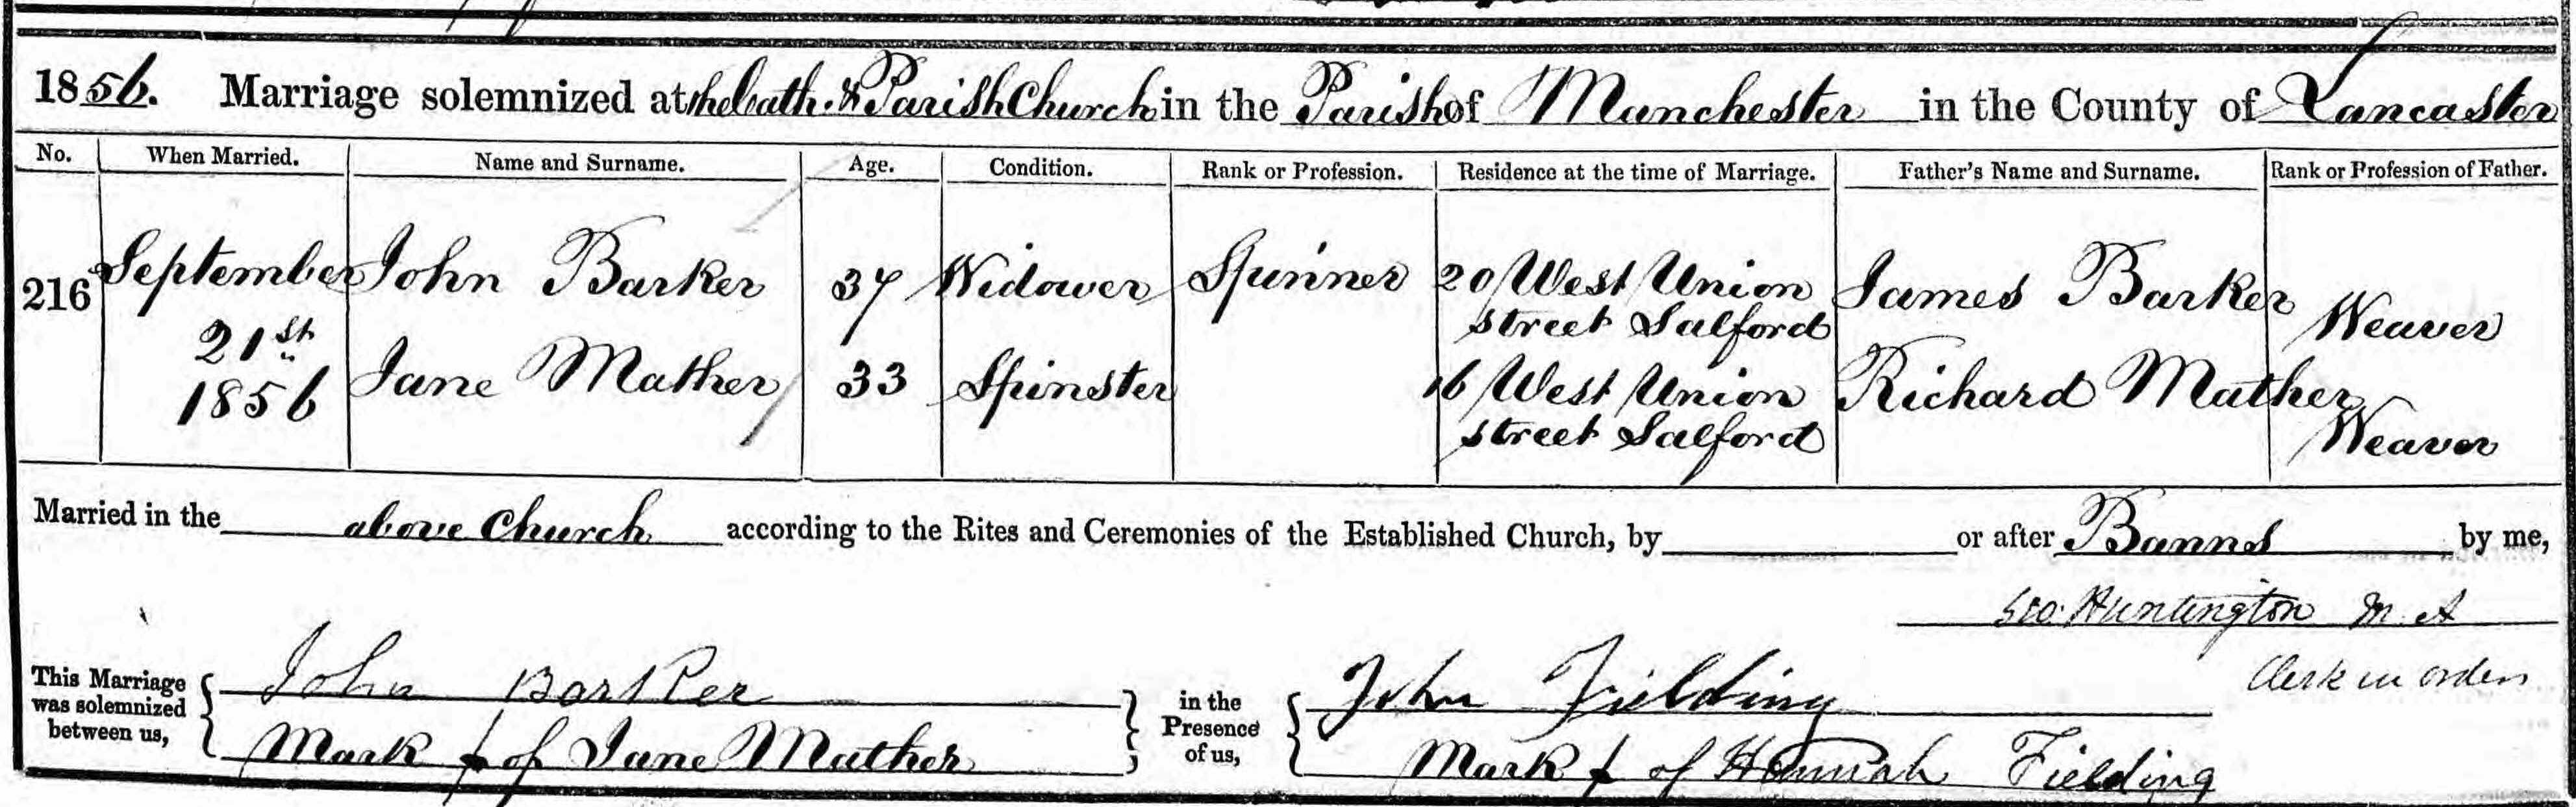 1856. Marriage solemnized at the Cath. & Parish Church in the Parish of Manchester in the County of Lancaster
No. When Married. Name and Surname. Age. Condition. Rank or Profession. Residence at the time of Marriage. Father's Name and Surname. Rank or Profession of Father.
216 September John Barker 37 Widower Spinner 20 West Union James Barker Weaver
21st street Salford
1856 Jane Mather 33 Spinster 16 West Union Richard Mather Weaver
street Salford
Married in the above Church according to the Rites and Ceremonies of the Established Church, by or after Banns by me,
Geo. Huntington M.A
Clerk in orders
This Marriage was solemnized between us, John Barker in the Presence of us, John Fielding
Mark + of Jane Mather Mark + of Hannah Fielding